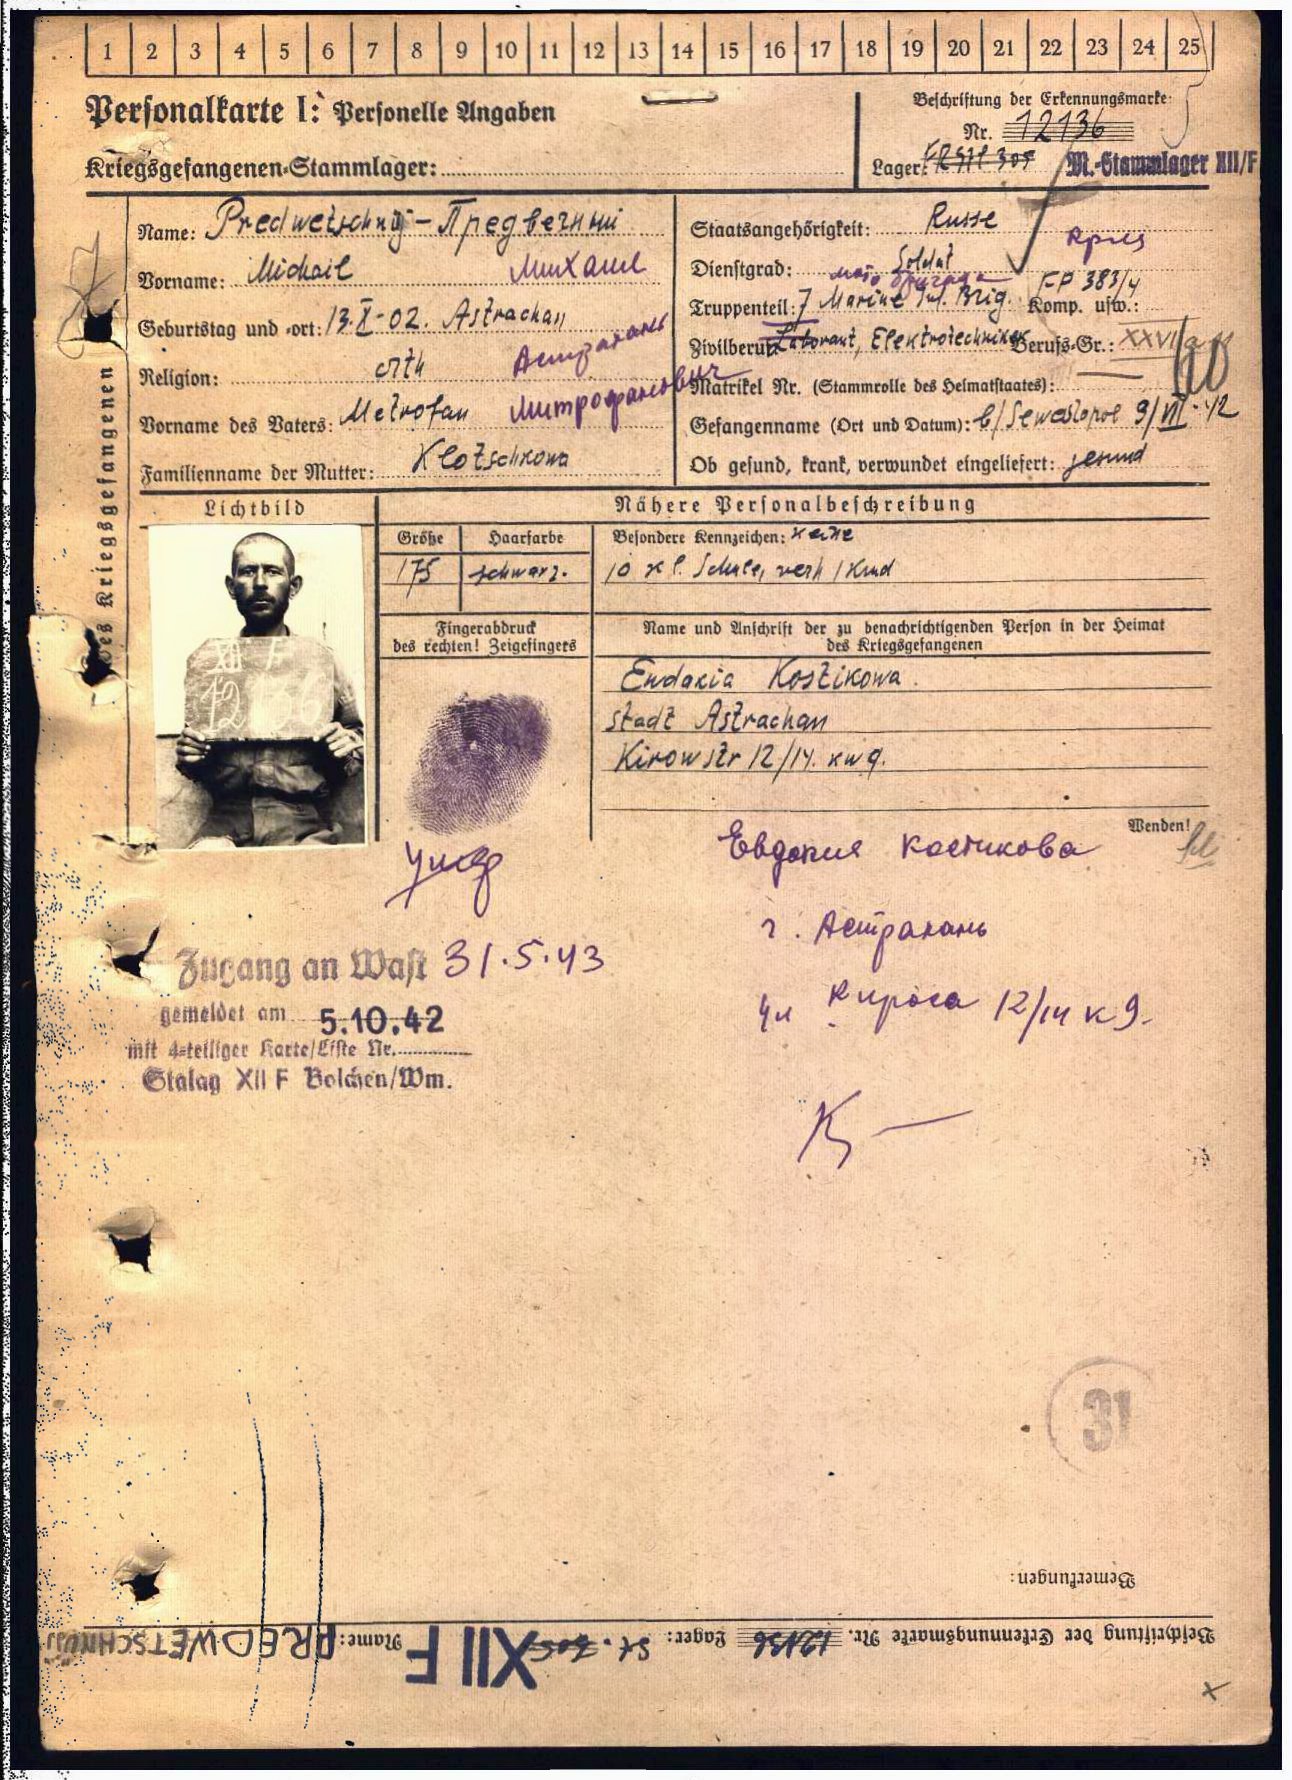 1 2 3 4 5 6 7 8 9 10 11 12 13 14 15 16 17 18 19 20 21 22 23 24 25
Personalkarte I: Personelle Angaben
Kriegsgefangenen-Stammlager:
Beschriftung der Erkennungsmarke:
Nr. 12136
Lager: 305 M.-Stammlager XII/F
des Kriegsgefangenen
Name: Predwetschnij - Предвечный
Vorname: Michail Михаил
Geburtstag und -ort: 13.X-02. Astrachan
Астрахань
Religion: orth
Vorname des Vaters: Metrofan Митрофанович
Familienname der Mutter: Klotschkowa
Staatsangehörigkeit: Russe
Dienstgrad: Soldat
Truppenteil: 7 Marine Inf. Brig. Komp. usw.:
бригада FP 383/4
Zivilberuf: Laborant, Elektrotechniker Berufs-Gr.: XXVI
10
Matrikel Nr. (Stammrolle des Heimatstaates):
Gefangenname (Ort und Datum): b/Sewastopol 9/VII-42
Ob gesund, krank, verwundet eingeliefert: gesund
Lichtbild
XII F
12136
Nähere Personalbeschreibung
Größe Haarfarbe Besondere Kennzeichen: keine
175 schwarz. 10 Kl. Schule, verh 1 Kind
Fingerabdruck
des rechten! Zeigefingers
Name und Anschrift der zu benachrichtigenden Person in der Heimat
des Kriegsgefangenen
Ewdakia Kostikowa.
stadt Astrachan
Kirowstr 12/14. kw 9.
Wenden!
Евдокия Костикова
г. Астрахань
ул Кирова 12/14 к 9.
Zugang an Wast 31.5.43
gemeldet am 5.10.42
mit 4-teiliger Karte/Liste Nr.
Stalag XII F Bolchen/Wm.
31
Bemerkungen:
Beschriftung der Erkennungsmarke Nr. 12136 Lager: St. 305 XII F Name: PREDWETSCHNIJ